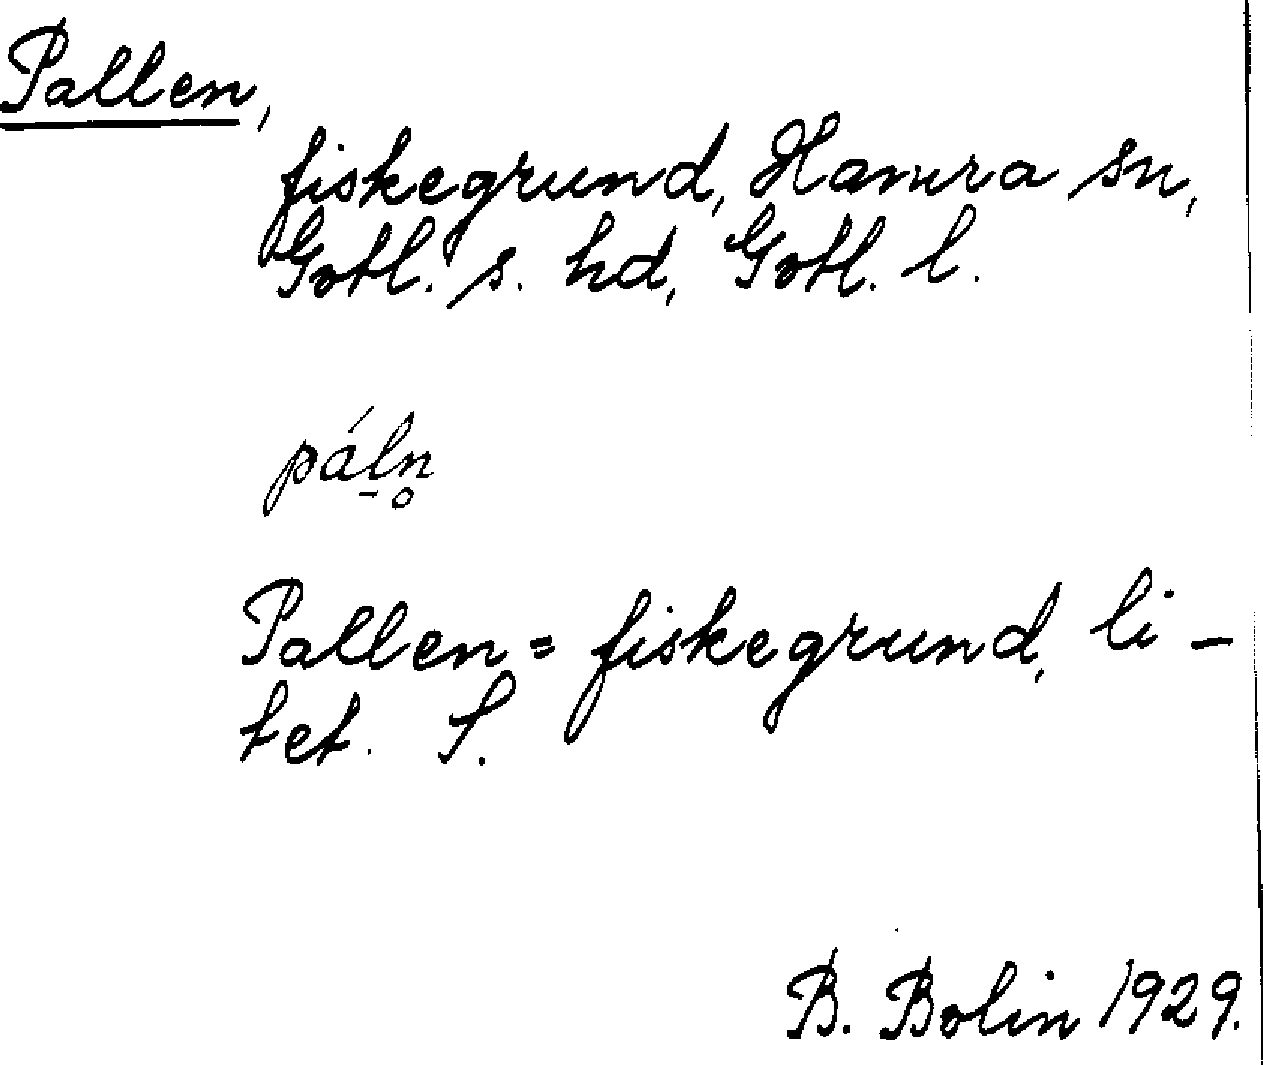 Pallen,
fiskegrund, Hamra sn,
Gotl. s. hd, Gotl. l.
pál̠n̥
Pallen = fiskegrund, li-
tet. S.
B. Bolin 1929.